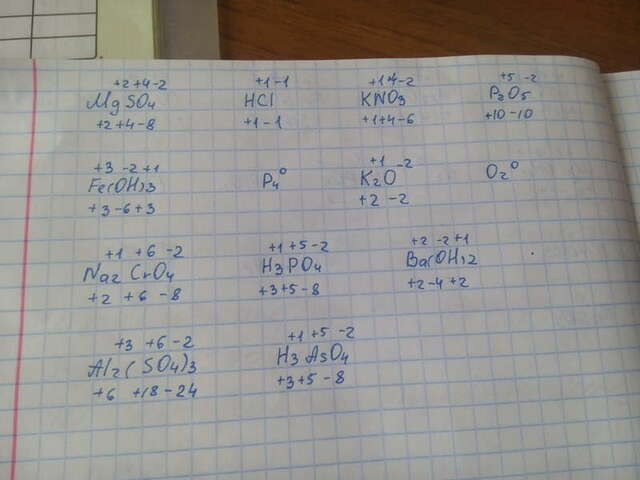 +2 +4 -2 +1 -1 +1 +4 -2 +5 -2
MgSO4 HCl KNO3 P2O5
+2 +4 -8 +1 -1 +1 +4 -6 +10 -10
+3 -2 +1 +1 -2
Fe(OH)3 P4⁰ K2O O2⁰
+3 -6 +3 +2 -2
+1 +6 -2 +1 +5 -2 +2 -2 +1
Na2CrO4 H3PO4 Ba(OH)2
+2 +6 -8 +3 +5 -8 +2 -4 +2
+3 +6 -2 +1 +5 -2
Al2(SO4)3 H3AsO4
+6 +18 -24 +3 +5 -8